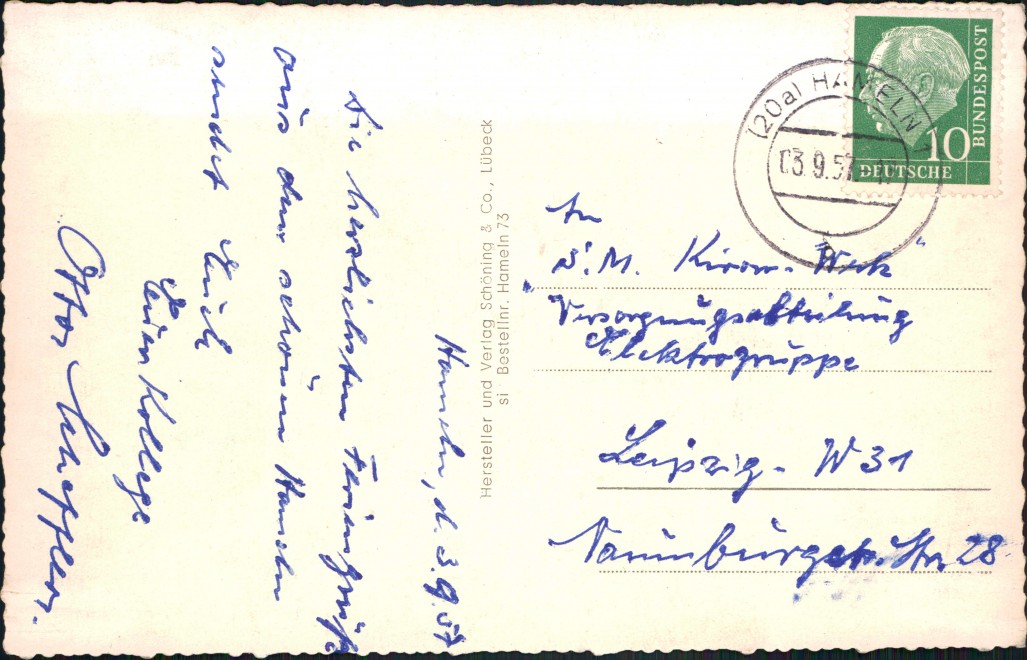 Hameln, d. 3.9.57
Die herzlichsten Feriengrüße
aus dem schönen Hameln
sendet Euch
Euer Kollege
Otto Scheffler.
Hersteller und Verlag Schöning & Co., Lübeck
si Bestellnr. Hameln 73
(20a) HAMELN
03.9.57
DEUTSCHE
BUNDESPOST
10
An
S.M. Kirow-Werk
Versorgungsabteilung
Elektrogruppe
Leipzig - W 31
Naumburger Str 28